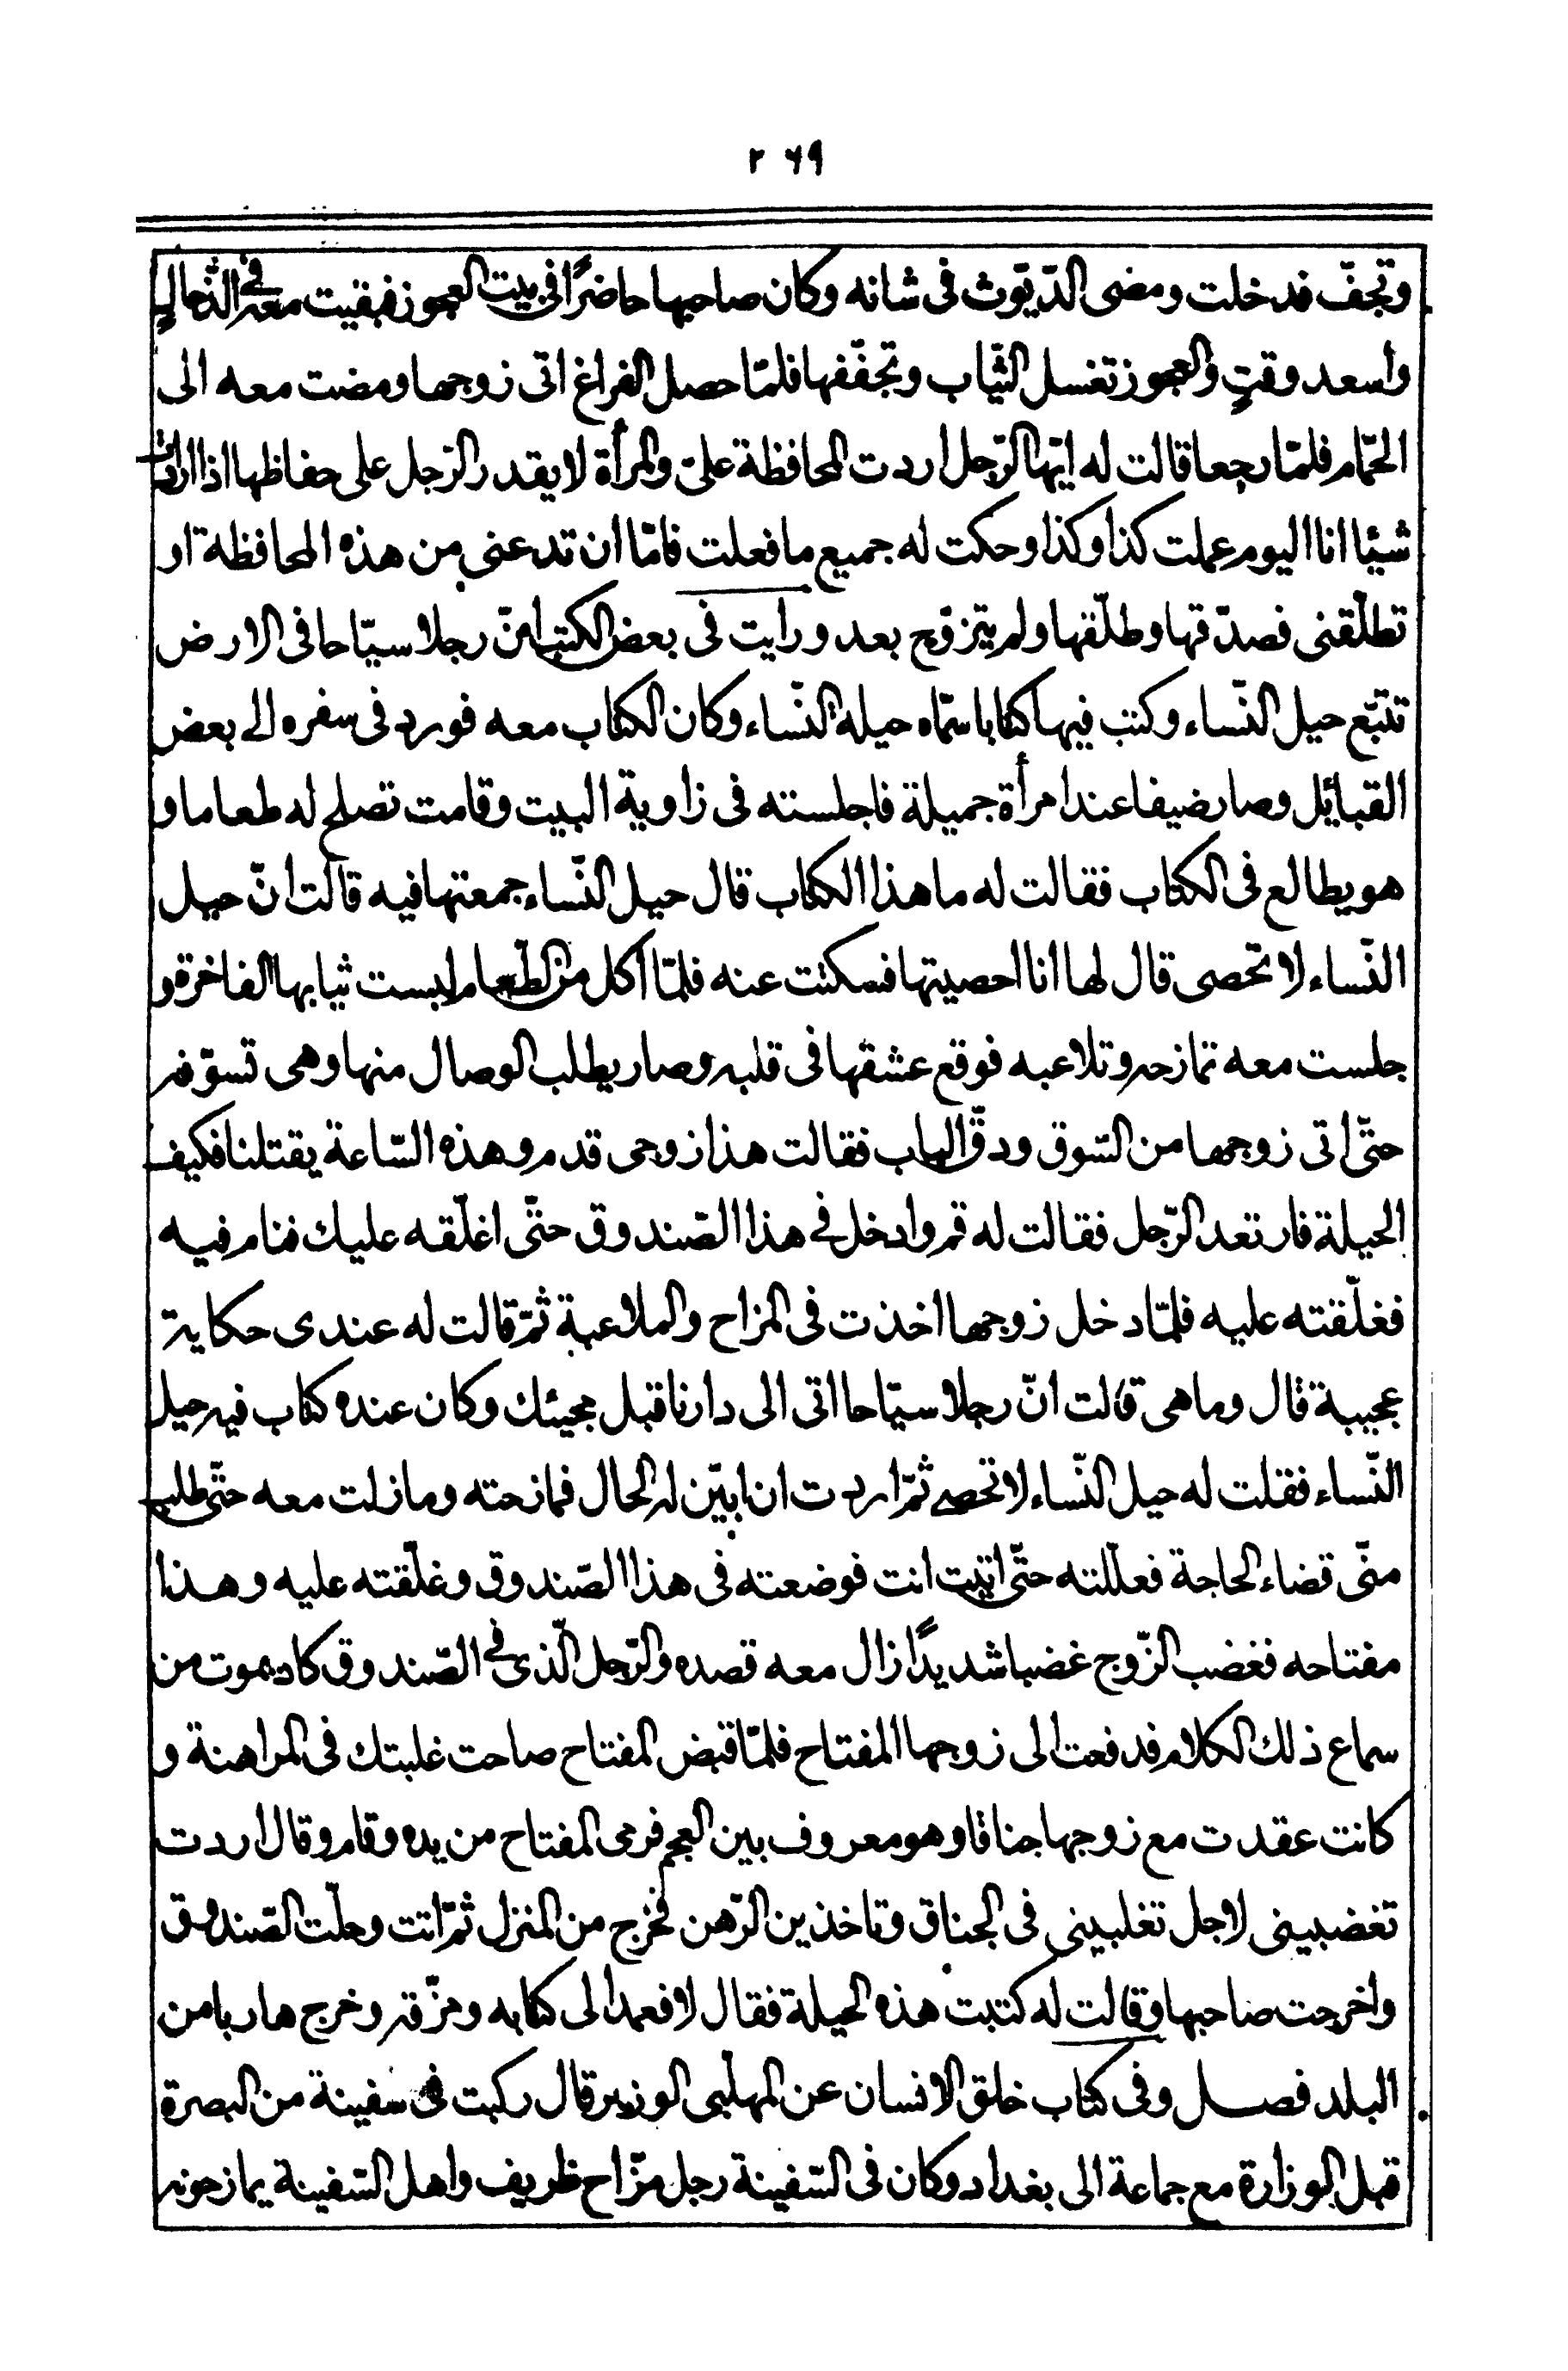 ٢٦٩
وتجفّ فدخلت ومضى الدّيّوث فى شانه وكان صاحبها حاضرًا فى بيت العجوز فبقيت معه فى الذّ حال
وأسعد وقتٍ والعجوز تغسل الثّياب وتجفّفها فلمّا حصل الفراغ اتى زوجها ومضت معه الى
الحمّام فلمّا رجعا قالت له ايّها الرّجل اردت المحافظة علىّ والمرأة لا يقدر الرّجل على حفاظها اذا ارادت
شيئا انا اليوم عملت كذا وكذا وحكت له جميع ما فعلت فامّا ان تدعنى من هذه المحافظة او
تطلّقنى فصدّقها وطلّقها ولم يتزوّج بعد ورايت فى بعض الكتب انّ رجلا سيّاحا فى الارض
تتبّع حيل النّساء وكتب فيها كتابا سمّاه حيلة النّساء وكان الكتاب معه فورد فى سفره الى بعض
القبائل وصار ضيفا عند امرأة جميلة فاجلسته فى زاوية البيت وقامت تصلح له طعاما و
هو يطالع فى الكتاب فقالت له ما هذا الكتاب قال حيل النّساء جمعتها فيه قالت انّ حيل
النّساء لا تحصى قال لها انا احصيتها فسكتت عنه فلمّا أكل من الطّعام لبست ثيابها الفاخرة و
جلست معه تمازحه وتلاعبه فوقع عشقها فى قلبه وصار يطلب الوصال منها وهى تسوّفه
حتّى اتى زوجها من السّوق ودقّ الباب فقالت هذا زوجى قدم وهذه السّاعة يقتلنا فكيف
الحيلة فارتعد الرّجل فقالت له قم وادخل فى هذا الصّندوق حتّى اغلّقه عليك فنام فيه
فغلّقته عليه فلمّا دخل زوجها اخذت فى المزاح والملاعبة ثمّ قالت له عندى حكاية
عجيبة قال وما هى قالت انّ رجلا سيّاحا اتى الى دارنا قبل مجيئك وكان عنده كتاب فيه حيل
النّساء فقلت له حيل النّساء لا تحصى ثمّ اردت ان ابيّن له الحال فمازحته وما زلت معه حتّى طلب
منّى قضاء الحاجة فعلّلته حتّى اتيت انت فوضعته فى هذا الصّندوق وغلّقته عليه وهذا
مفتاحه فغضب الزّوج غضبا شديدًا زال معه قصده والرّجل الّذى فى الصّندوق كاد يموت من
سماع ذلك الكلام فدفعت الى زوجها المفتاح فلمّا قبض المفتاح صاحت غلبتك فى المراهنة و
كانت عقدت مع زوجها جناقا وهو معروف بين العجم فرمى المفتاح من يده وقام وقال اردت
تغضبينى لاجل تغلبينى فى الجناق وتاخذين الرّهن فخرج من المنزل ثمّ اتت وحلّت الصّندوق
واخرجت صاحبها وقالت له كتبت هذه الحيلة فقال لا فعمد الى كتابه ومزّقه وخرج هاربا من
البلد فصل وفى كتاب خلق الانسان عن المهلّبى الوزير قال ركبت فى سفينة من البصرة
قبل الوزارة مع جماعة الى بغداد وكان فى السّفينة رجل مزّاح ظريف واهل السّفينة يمازحونه